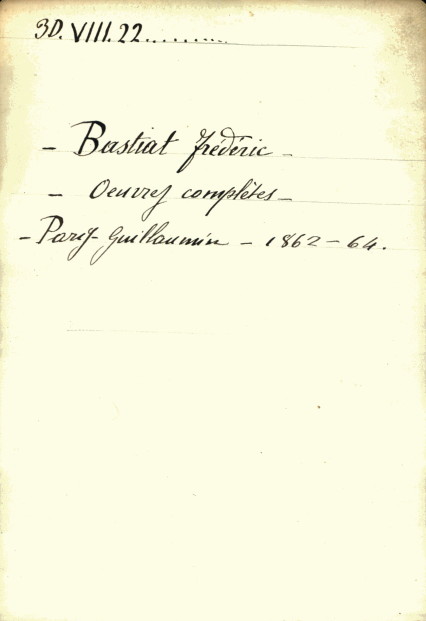 3D. VIII. 22.........
- Bastiat Frédéric -
- Oeuvres complètes -
- Paris - Guillaumin - 1862 - 64.